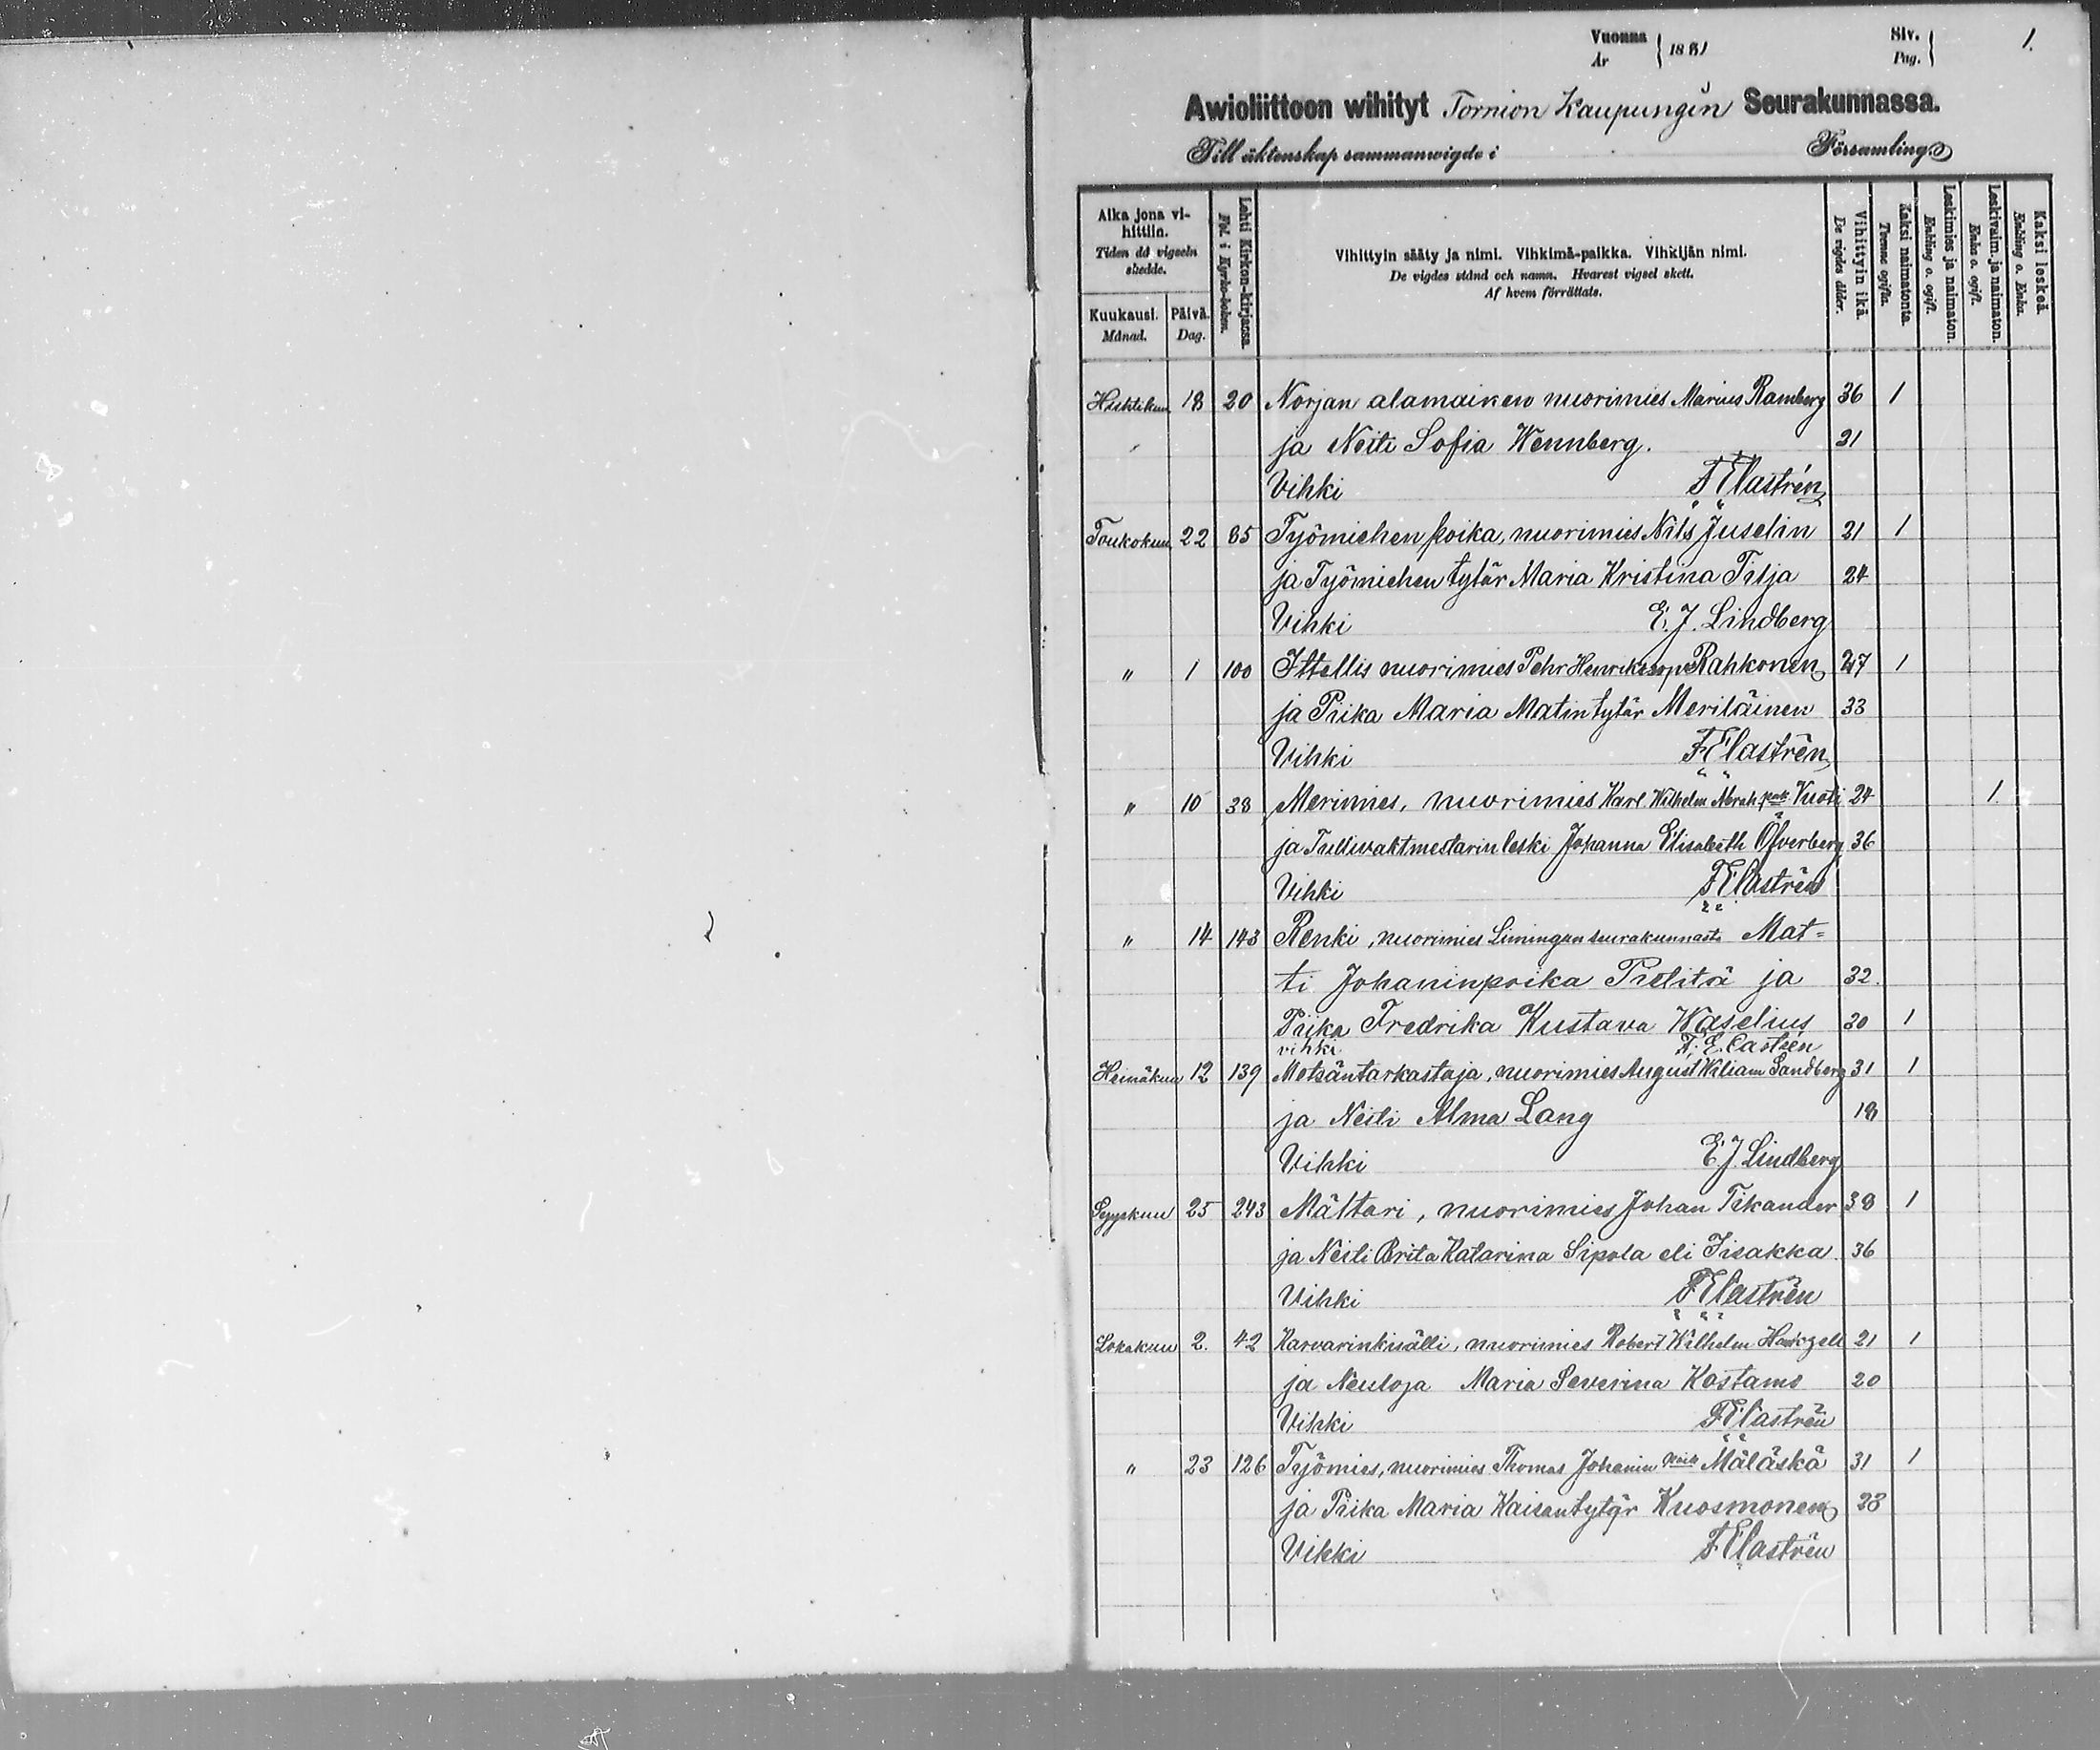 Vuonna 1881 Siv. 1.
År Pag.
Awioliittoon wihityt Tornion Kaupungin Seurakunnassa.
Till äktenskap sammanwigde i Församling
Aika jona vihittiin.
Tiden då vigseln skedde.
Kuukausi. Månad.
Päivä. Dag.
Lehti Kirkon-kirjassa.
Fol. i Kyrko-boken.
Vihittyin sääty ja nimi. Vihkimä-paikka. Vihkijän nimi.
De vigdes stånd och namn. Hvarest vigsel skett.
Af hvem förrättats.
Vihittyin ikä. De vigdes ålder.
Kaksi naimatonta. Tvenne ogifta.
Leskimies ja naimaton. Enkling o. ogift.
Leskivaim. ja naimaton. Enka o. ogift.
Kaksi leskeä. Enkling o. Enka.
Huhtikuu 18 20 Norjan alamainen nuorimies Marius Ramberg 36 1
ja Neiti Sofia Wennberg. 21
Vihki F E Castrén
Toukokuu 22 85 Työmiehen poika, nuorimies Nils Juselin 21 1
ja Työmiehen tytär Maria Kristina Tilja 24
Vihki E. J. Lindberg
" 1 100 Ittellis nuorimies Pehr Henriksson Rahkonen 27 1
ja Piika Maria Matintytär Meriläinen 33
Vihki F E Castrén
" 10 38 Merimies, nuorimies Karl Wilhelm Abrah. poik Vuoti 24 1
ja Tullivaktmestarin leski Johanna Elisabeth Öfverberg 36
Vihki F E Castrén
" 14 143 Renki, nuorimies Limingan seurakunnasta Mat=
ti Johaninpoika Pielitä ja 32.
Piika Fredrika Kustava Waselius 30 1
vihki F. E. Castren
Heinäkuu 12 139 Metsäntarkastaja, nuorimies August Wiliam Sandberg 31 1
ja Neiti Alma Lang 18
Vihki E J. Lindberg
Syyskuu 25 243 Mältari, nuorimies Johan Tikander 38 1
ja Neiti Brita Katarina Sipola eli Iisakka 36
Vihki F E Castrén
Lokakuu 2. 42 Karvarinkisälli, nuorimies Robert Wilhelm 21 1
ja Neuloja Maria Severina Kostamo 20
Vihki F E Castrén
" 23 126 Työmies, nuorimies Thomas Johanin poik Mäläskä 31 1
ja Piika Maria Kaisantytär Kuosmonen 23
Vihki F E Castrén